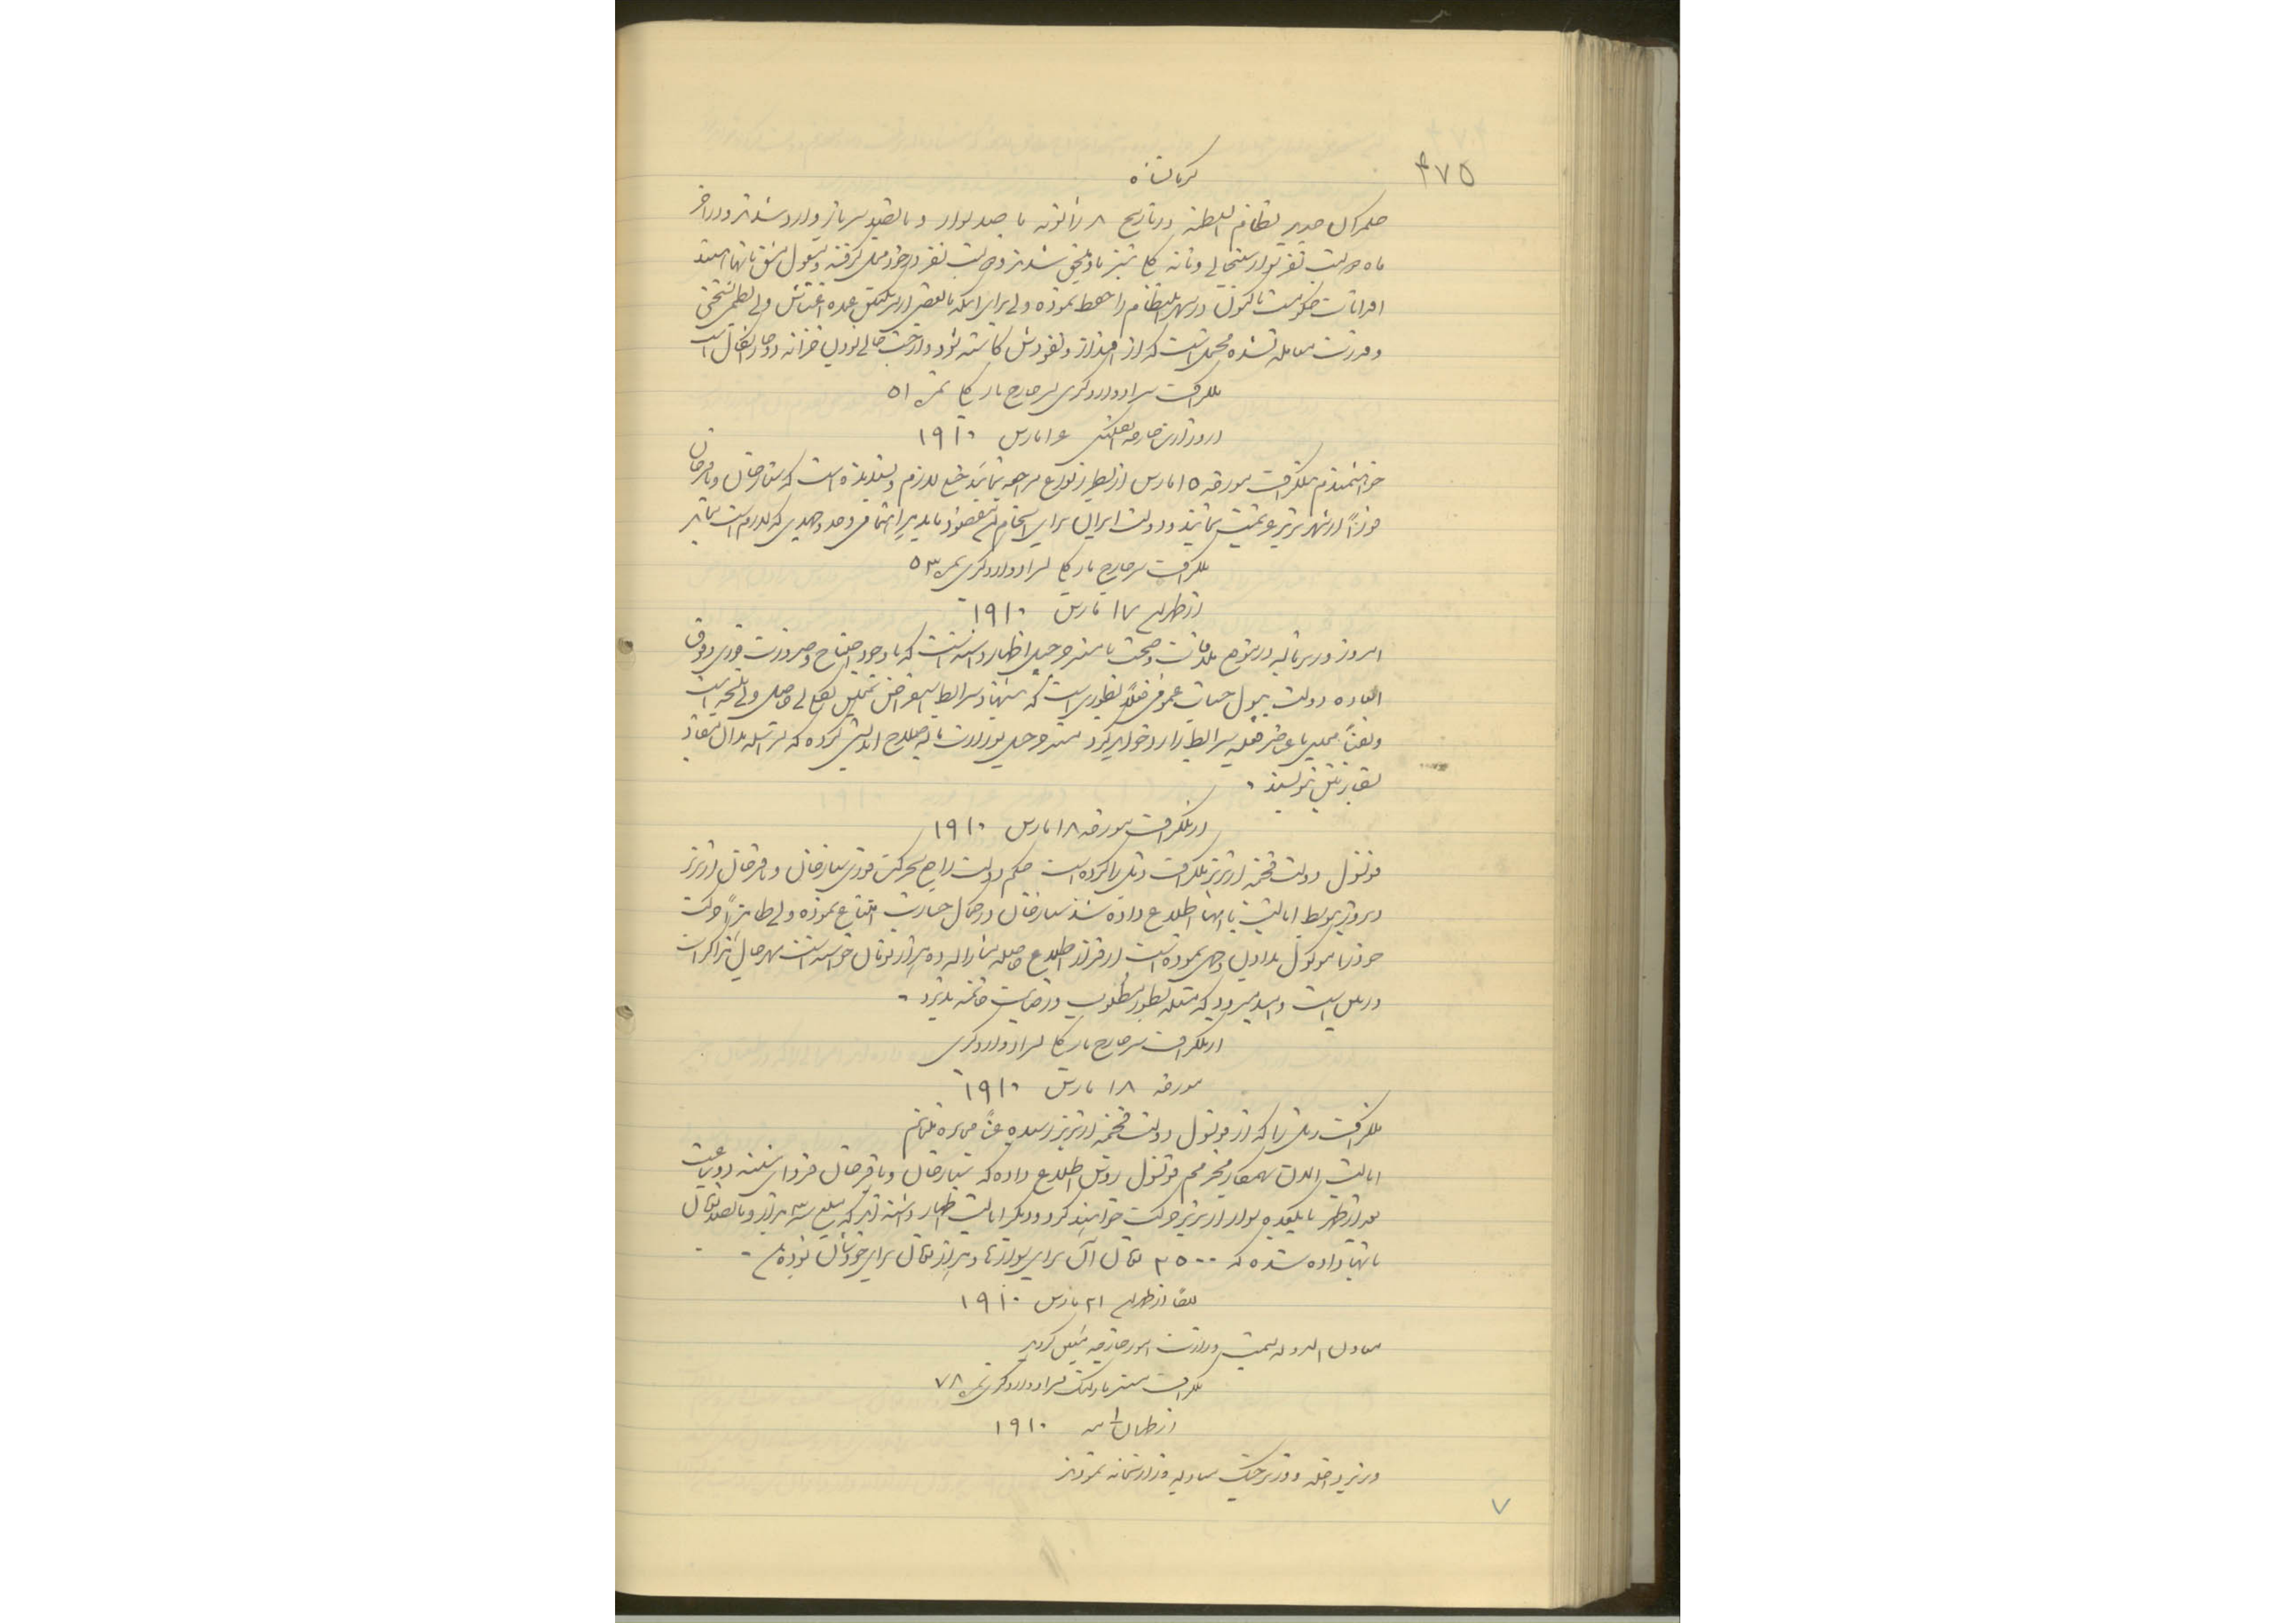 ۴۷۵
کرمانشاه
حکمران جدید نظام السلطنه در تاریخ ۸ ژانویه با صد سوار و پانصد سرباز وارد شدند و در آخر
ماه دویست نفر سوار سنجابی و شده و دویست نفر دیگر و مشغول مشق
اقدامات حکومت تاکنون در شهر انتظام را حفظ نموده ولی برای اینکه با بعضی عمده اغتشاش و بی نظمی بسختی
و قدرت معامله نشده محتمل است که از اقتدار و نفوذش کاسته شود و از جهت خالی بودن خزانه دچار اشکال است
تلگراف سر ادوارد گری بسر جارج بارکلی نمره ۵۱
از وزارت خارجه انگلیس ۱۶ مارس ۱۹۱۰
خواهشمندم تلگراف مورخه ۱۵ مارس مراجعه نمائید خیلی لازم و پسندیده است که ستارخان و باقرخان
فوراً از شهر تبریز عزیمت نمایند و دولت ایران برای انجام این مقصود باید هر اهتمامی و جد و جهدی که لازم است بنماید
تلگراف سر جارج بارکلی بسر ادوارد گری نمره ۵۳
از طهران ۱۷ مارس ۱۹۱۰
امروز وزیر مالیه در موقع ملاقات و صحبت با مستر چرچیل اظهار داشته است که با وجود احتیاج و ضرورت فوری و فوق
العاده دولت بپول حسیات عمومی فعلاً بطوری است که پیشنهاد شرایط استقراض
و یقیناً مجلس با شرایط را رد خواهد کرد مستر چرچیل بوزارت مالیه صلاح اندیشی کرده که
سفارتین بنویسند .
از تلگراف مورخه ۱۸ مارس ۱۹۱۰
قونسول دولت فخیمه از تبریز تلگراف ذیل را کرده است حکم دولت راجع بحرکت فوری ستارخان و باقرخان از تبریز
دیروز توسط ایالت بآنها اطلاع داده شد ستارخان در کمال جسارت امتناع نموده ولی ظاهراً حرکت
خود را موکول بدادن وجهی نموده است از قرار اطلاع حاصله مشارالیه ده هزار تومان خواسته است بهر حال مذاکرات
در میان است و امید میرود که مسئله بطور مطلوب و رضایت خاتمه پذیرد .
از تلگراف سر جارج بارکلی بسر ادوارد گری
مورخه ۱۸ مارس ۱۹۱۰
تلگراف ذیل را که از قونسول دولت فخیمه از تبریز رسیده عیناً مخابره مینمایم
ایالت الان بهمکار محترمم قونسول روس اطلاع داده که ستارخان و باقرخان فردای شنبه دو ساعت
بعد از ظهر با یکعده سوار از تبریز حرکت خواهند کرد و دیگر ایالت اظهار داشته اند که مبلغ سه هزار و پانصد تومان
بآنها داده شده که ۲۵۰۰ تومان آن برای سوارها و هزار تومان برای خودشان بوده .
ایضاً از طهران ۲۱ مارس ۱۹۱۰
معاون الدوله بسمت وزارت امور خارجه معین گردید
تلگراف مستر مارلینگ بسر ادوارد گری نمره ۷۸
از طهران ۱۹۱۰
وزیر داخله و وزیر جنگ مبادله وزارتخانه نمودند
۷